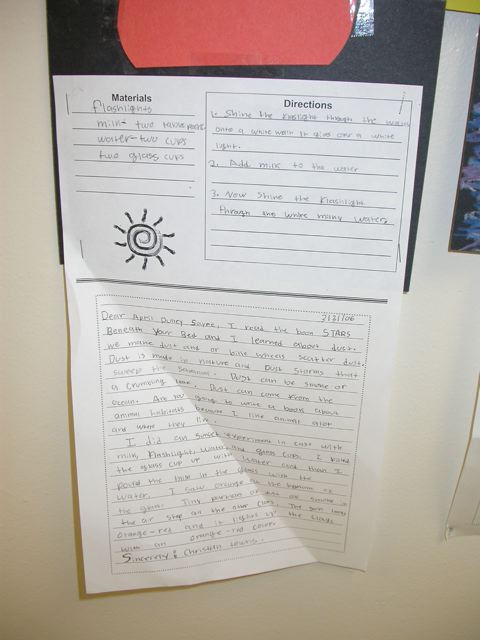 Materials
flashlights
milk- two tablespoons
water- two cups
two glass cups
Directions
1. Shine the flaslight through the water
onto a white wall. It gives over a white
light.
2. Add milk to the water
3. Now shine the flashlight
through the white milky water
2/21/06
Dear April Pulley Sayre, I read the book STARS
Beneath Your Bed and I learned about dust.
we make dust and or bike wheels scatter dust.
Dust is made in nature and Dust storms that
sweep the savannah. Dust can be smoke or
a crumbling Dust can come from the
ocean. Are you going to write a book about
animal habitats because I like animals alot
and where they live.
I did an sunset experiment in class with
milk, flashlight, water and glass cups. I filled
the glass cup up with water and then I
the milk in the glass with the
water. I saw orange at the bottom of
the glass. Tiny of dust or smoke in
the air stop all the other colors. The sun looks
orange-red and it lights up the clouds
with an orange-red color.
Sincerely: Christian